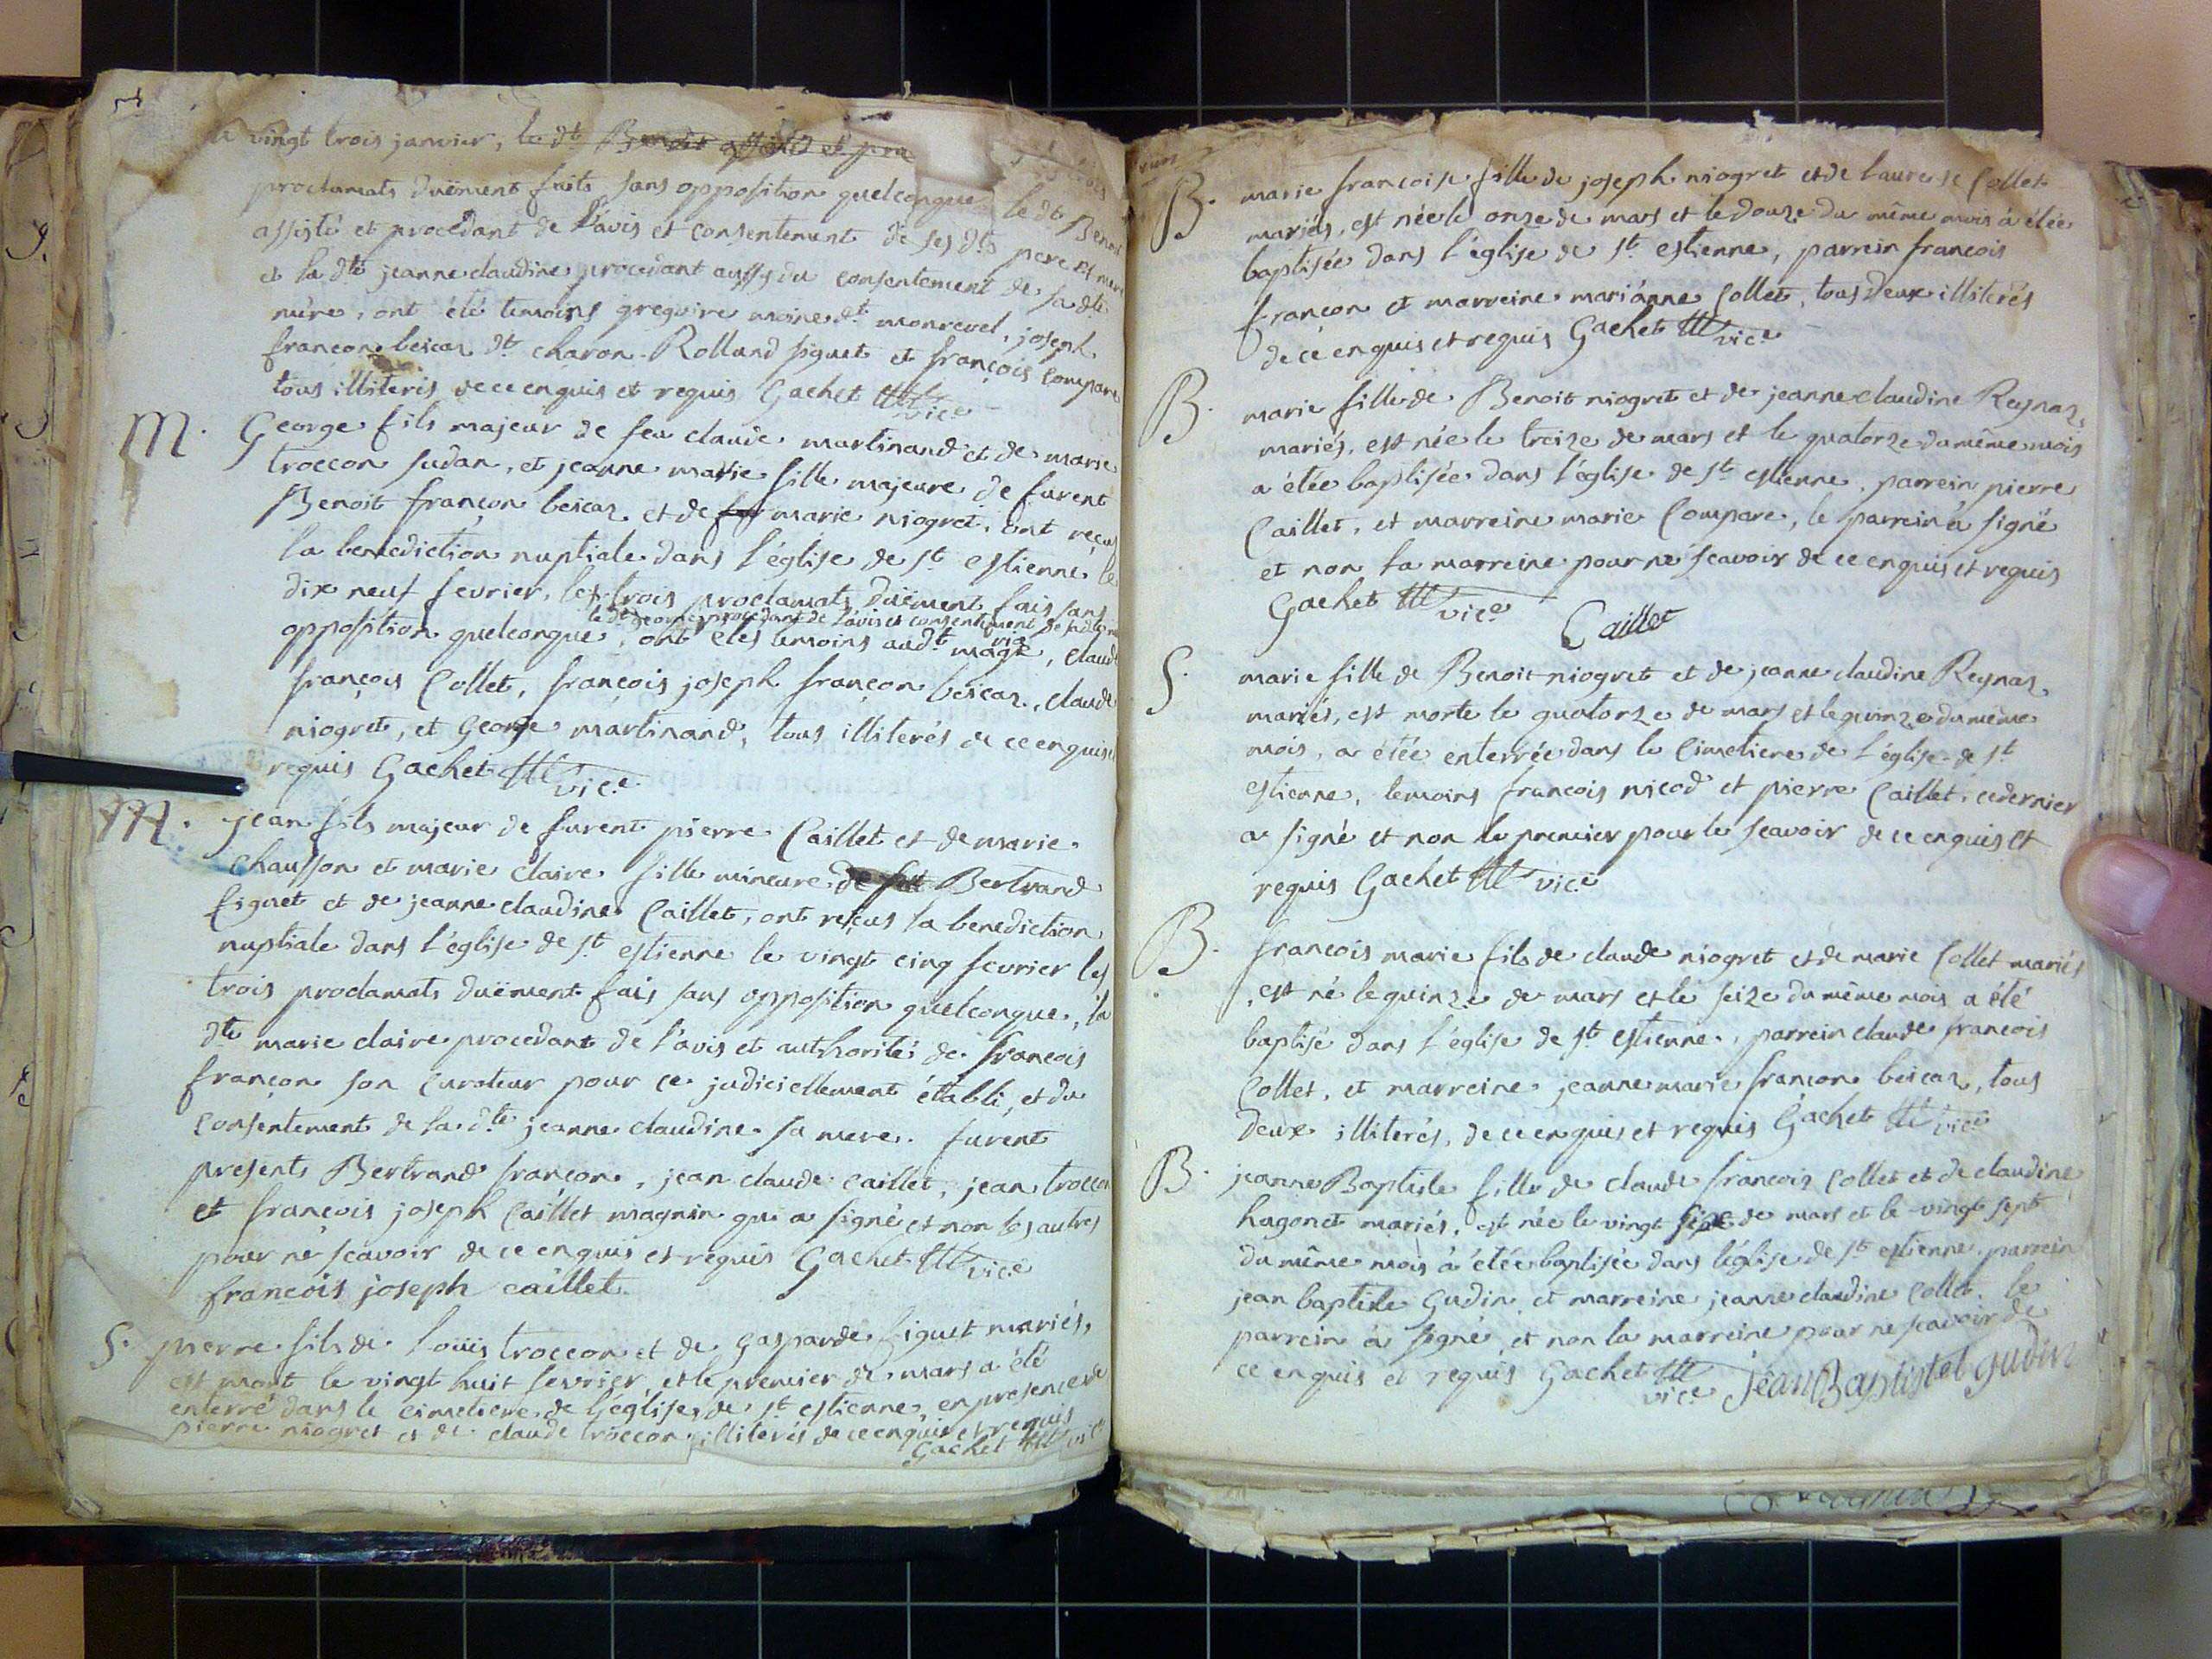 vingt trois janvier, le dt Benoit assisté et pro
les trois
proclamats duëment faits sans opposition quelconque le dt Benoit
assisté et procedant de l'avis et consentement de ses dts pere et mere
et la dte jeanne claudine procedant aussy du consentement de sa dte
mére, ont été temoins gregoire moine dt monrevel, joseph
françon beicaz dt charon. Rolland figuet et françois Compare
tous illiterés de ce enquis et requis Gachet vice
M. George fils majeur de feu claude martinand et de marie
troccon sudan, et jeanne marie fille majeure de furent
Benoit françon beicaz et de feu marie niogret, ont reçu
la benediction nuptiale dans l'église de st estienne le
dix neuf fevrier, les trois proclamats duëment fais sans
le dt george procedant de l'avis et consentement de sadte
opposition quelconque, ont étés temoins audt magë, claude
françois Collet, françois joseph françon beicaz, claude
niogret, et George martinand, tous illiterés de ce enquis
requis Gachet vice
M. jean fils majeur de furent pierre Caillet et de marie
Chausson et marie claire fille mineure de feu Bertrand
figuet et de jeanne claudine Caillet, ont reçus la benediction
nuptiale dans l'église de st estienne le vingt cinq fevrier les
trois proclamats duëment fais sans opposition quelconque, la
dte marie claire procedant de l'avis et authorité de françois
françon son curateur pour ce judiciellement établi, et du
consentement de la dte jeanne claudine sa mere. furent
presents Bertrand françon, jean claude Caillet, jean troccon
et françois joseph Caillet magnin qui a signé et non les autres
pour ne sçavoir de ce enquis et requis Gachet vice
françois joseph caillet
S. pierre fils de loüis troccon et de gasparde figuet mariés,
est mort le vingt huit fevrier et le premier de mars a été
enterré dans le cimetiere de l'eglise de st estienne, en presence de
pierre niogret et de claude troccon illiterés de ce enquis et requis
Gachet vice
B. marie francoise fille de joseph niogret et de laurence Collet
mariés, est née le onze de mars et le douze du même mois à étée
baptisée dans l'église de st estienne, parrein françois
françon et marreine mariánne Collet, tous deux illiterés
de ce enquis et requis Gachet vice
B. marie fille de Benoit niogret et de jeanne claudine Reynaz,
mariés, est née le treize de mars et le quatorze du même mois
a étée baptisée dans l'église de st estienne. parrein pierre
Caillet, et marreine marie Compare, le parrein à signé
et non la marreine pour ne sçavoir de ce enquis et requis
Gachet vice Caillet
S. marie fille de Benoit niogret et de jeanne claudine Reynaz
mariés, est morte le quatorze de mars et le quinze du même
mois, a étée enterrée dans le Cimetiere de l'église de st
estienne, temoins françois nicod et pierre Caillet, ce dernier
a signé et non le premier pour le sçavoir de ce enquis et
requis Gachet vice
B. françois marie fils de claude niogret et de marie Collet mariés
, est né le quinze de mars et le seize du même mois a été
baptisé dans l'église de st estienne, parrein claude françois
Collet, et marreine jeanne marie françon beicaz, tous
deux illiterés, de ce enquis et requis Gachet vice
B. jeanne Baptiste fille de claude françois Collet et de claudine
hugonet mariés, est née le vingt six de mars et le vingt sept
du même mois à étée baptisée dans l'église de st estienne. parrein
jean baptiste Gudin, et marreine jeanne claudine Collet. le
parrein à signé, et non la marreine pour ne sçavoir de
ce enquis et requis Gachet
vice jean Baptistet gudin